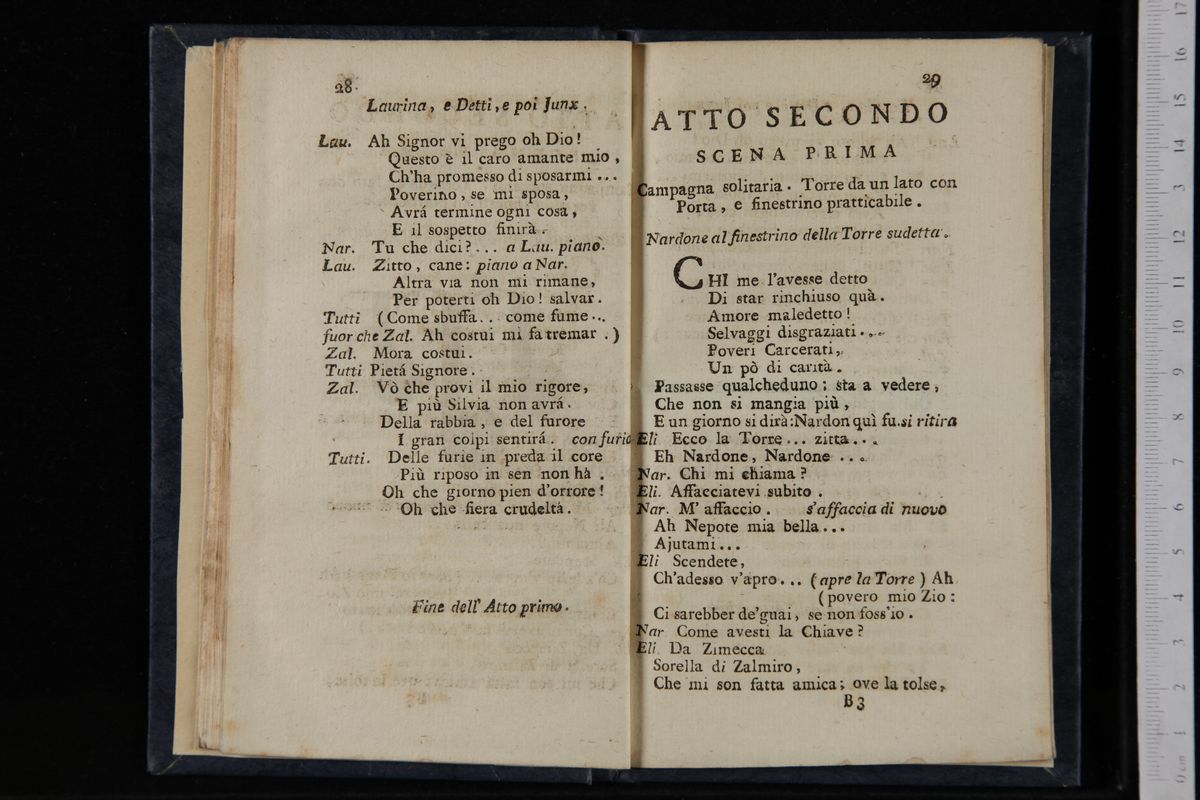 28.
Laurina, e Detti, e poi Junx.
Lau. Ah Signor vi prego oh Dio!
Questo è il caro amante mio,
Ch'ha promesso di sposarmi ...
Poverino, se mi sposa,
Avrá termine ogni cosa,
E il sospetto finirà.
Nar. Tu che dici?... a Lau. piano.
Lau. Zitto, cane: piano a Nar.
Altra via non mi rimane,
Per poterti oh Dio! salvar.
Tutti (Come sbuffa.. come fume...
fuor che Zal. Ah costui mi fa tremar.)
Zal. Mora costui.
Tutti Pietá Signore.
Zal. Vò che provi il mio rigore,
E più Silvia non avrá.
Della rabbia, e del furore
I gran colpi sentirá. con furia
Tutti. Delle furie in preda il core
Più riposo in sen non hà.
Oh che giorno pien d'orrore!
Oh che fiera crudeltà.
Fine dell' Atto primo.
29
ATTO SECONDO
SCENA PRIMA
Campagna solitaria. Torre da un lato con
Porta, e finestrino pratticabile.
Nardone al finestrino della Torre sudetta.
CHI me l'avesse detto
Di star rinchiuso quà.
Amore maledetto!
Selvaggi disgraziati...
Poveri Carcerati,
Un pò di carità.
Passasse qualcheduno: sta a vedere,
Che non si mangia più,
E un giorno si dirà: Nardon quì fu. si ritira
Eli Ecco la Torre... zitta...
Eh Nardone, Nardone ...
Nar. Chi mi chiama?
Eli. Affacciatevi subito.
Nar. M' affaccio. s'affaccia di nuovo
Ah Nepote mia bella...
Ajutami...
Eli Scendete,
Ch'adesso v'apro... (apre la Torre) Ah
(povero mio Zio:
Ci sarebber de'guai, se non foss'io.
Nar Come avesti la Chiave?
Eli Da Zimecca
Sorella di Zalmiro,
Che mi son fatta amica; ove la tolse,
B3
0 cm 1 2 3 4 5 6 7 8 9 10 11 12 13 14 15 16 17